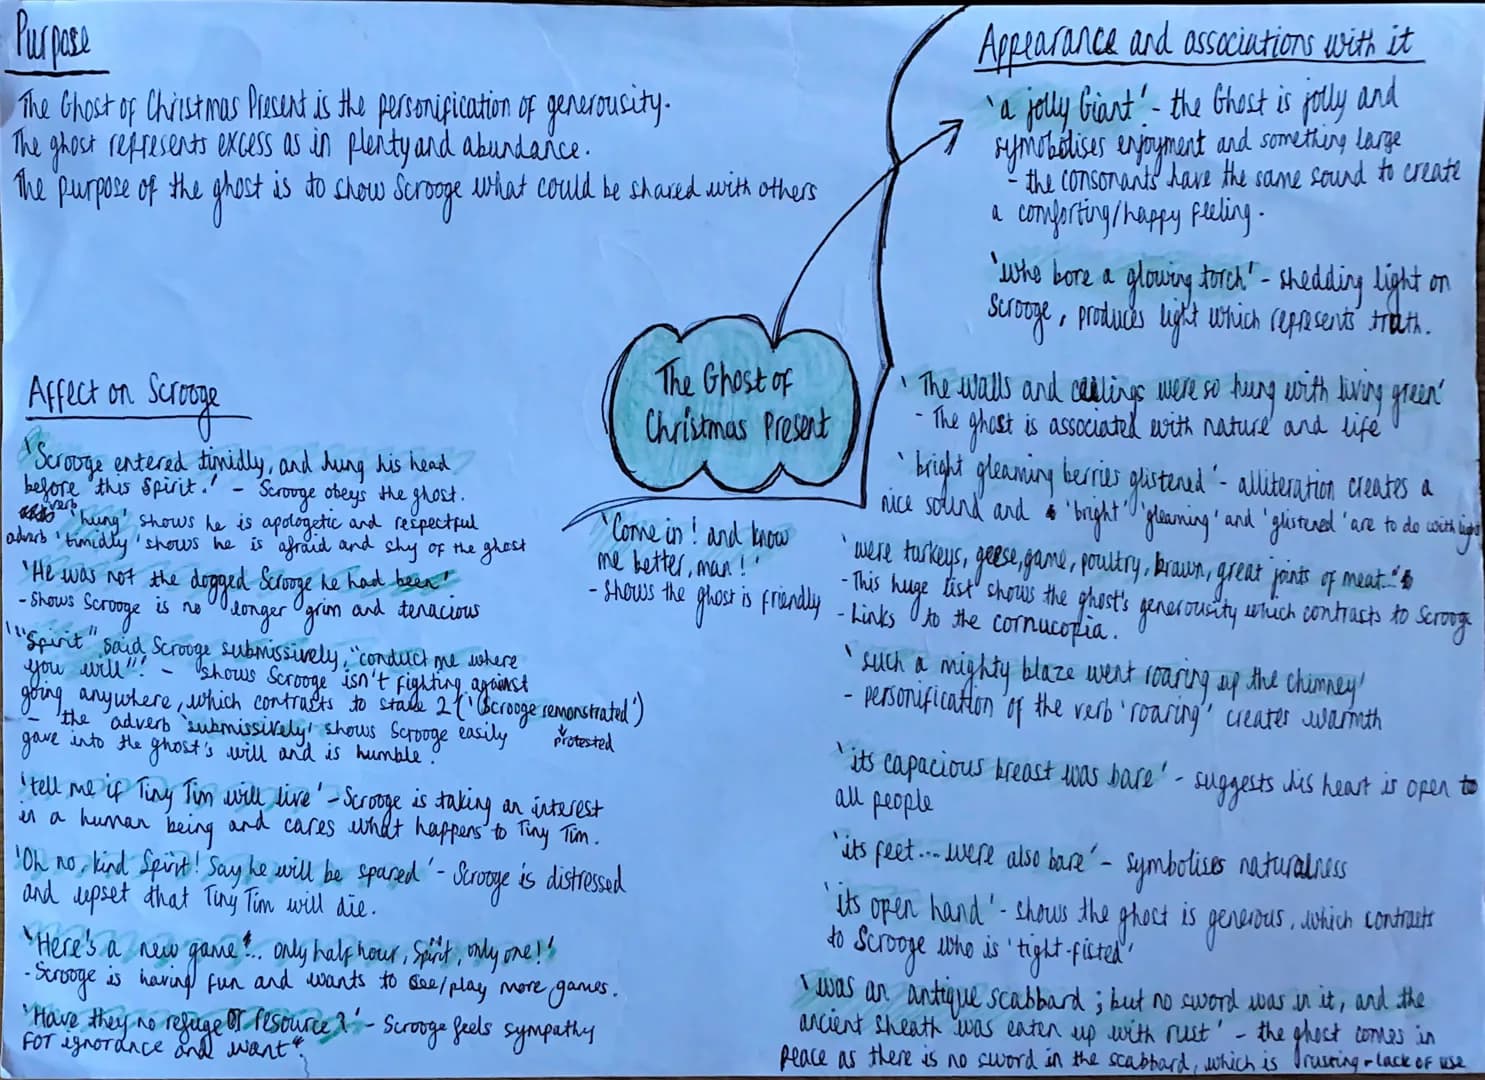 Purpose
The Ghost of Christmas Present is the personification of generousity.
The ghost represents excess as in plenty and abundance.
The purpose of the ghost is to show Scrooge what could be shared with others
Affect on Scrooge
'Scrooge entered timidly, and hung his head
before this Spirit.' - Scrooge obeys the ghost.
verb 'hung' shows he is apologetic and respectful
adverb 'timidly' shows he is afraid and shy of the ghost
'He was not the dogged Scrooge he had been'
- Shows Scrooge is no longer grim and tenacious
'"Spirit" said Scrooge submissively, "conduct me where
you will"' - shows Scrooge isn't fighting against
going anywhere, which contrasts to stave 2 ('Scrooge remonstrated')
protested
- the adverb 'submissively' shows Scrooge easily
gave into the ghost's will and is humble.
'tell me if Tiny Tim will live' - Scrooge is taking an interest
in a human being and cares what happens to Tiny Tim.
'Oh no, kind Spirit! Say he will be spared' - Scrooge is distressed
and upset that Tiny Tim will die.
'Here's a new game... only half hour, Spirit, only one!'
- Scrooge is having fun and wants to see/play more games.
'Have they no refuge or resource?' - Scrooge feels sympathy
for ignorance and want.
The Ghost of
Christmas Present
'Come in! and know
me better, man!'
- Shows the ghost is friendly
Appearance and associations with it
'a jolly Giant' - the Ghost is jolly and
symobolises enjoyment and something large
- the consonants have the same sound to create
a comforting/happy feeling.
'who bore a glowing torch' - shedding light on
Scrooge, produces light which represents truth.
'The walls and ceilings were so hung with living green'
- The ghost is associated with nature and life
'bright gleaming berries glistened' - alliteration creates a
nice sound and 'bright' 'gleaming' and 'glistened' are to do with light
'were turkeys, geese, game, poultry, brawn, great joints of meat...'
- This huge list shows the ghost's generousity which contracts to Scrooge
- Links to the cornucopia.
'such a mighty blaze went roaring up the chimney'
- personification of the verb 'roaring' creates warmth
'its capacious breast was bare' - suggests his heart is open to
all people
'its feet... were also bare' - symbolises naturalness
'its open hand' - shows the ghost is generous, which contracts
to Scrooge who is 'tight-fisted'
'was an antique scabbard; but no sword was in it, and the
ancient sheath was eaten up with rust' - the ghost comes in
peace as there is no sword in the scabbard, which is rusting - lack of use